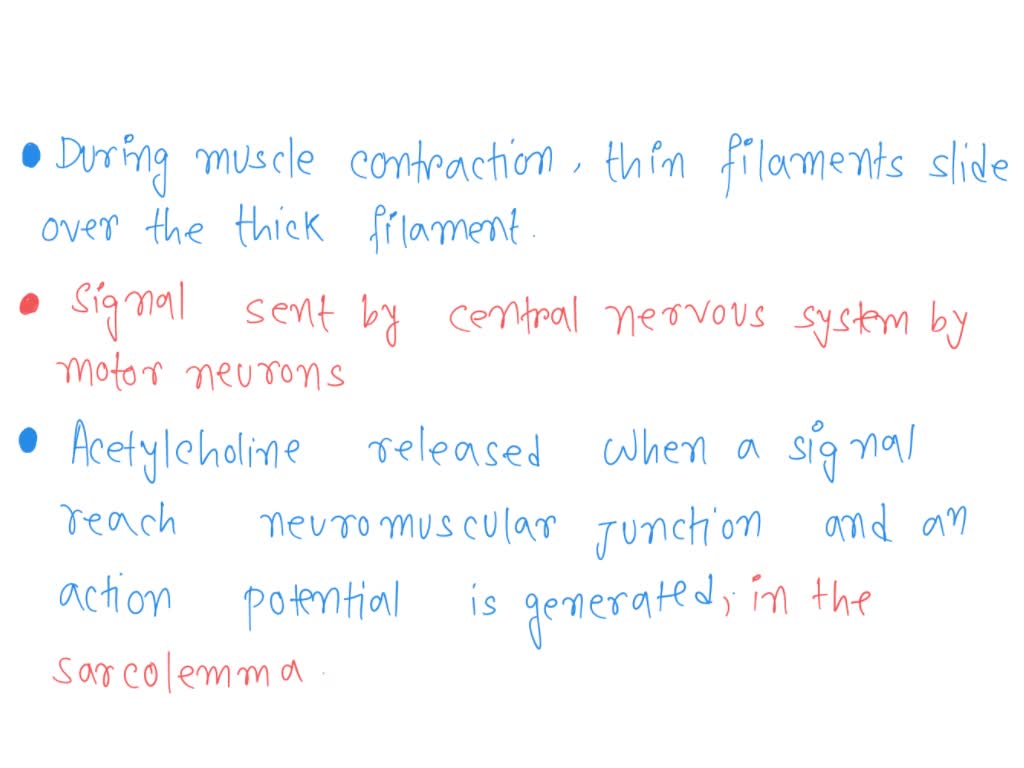 • During muscle contraction, thin filaments slide
over the thick filament.
• Signal sent by central nervous system by
motor neurons
• Acetylcholine released when a signal
reach neuromuscular junction and an
action potential is generated, in the
sarcolemma.